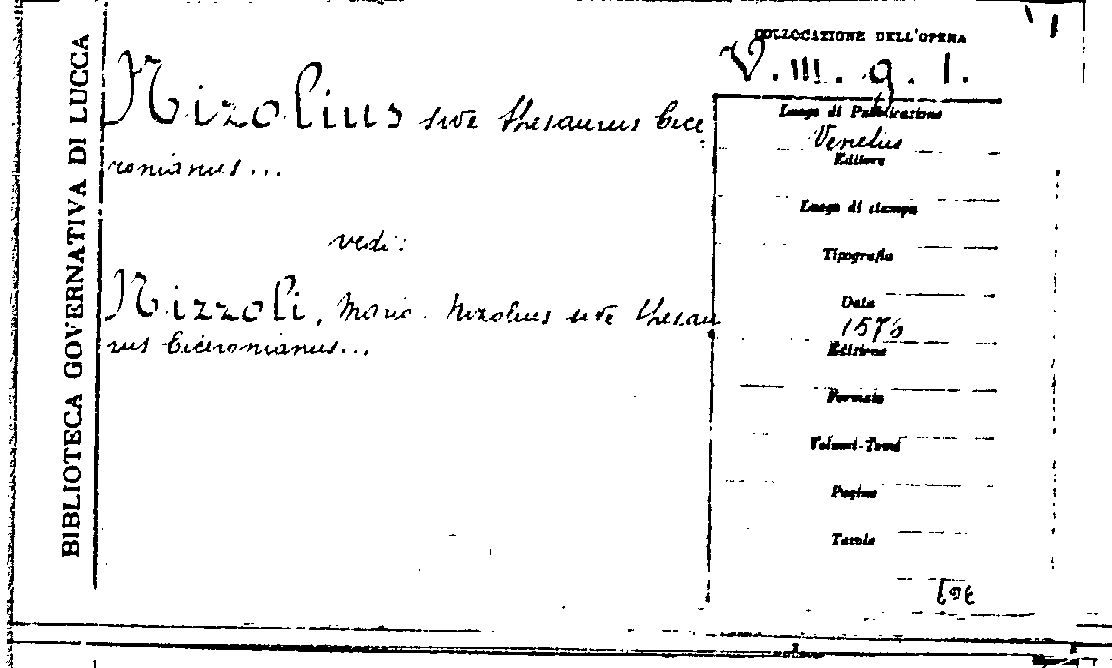 BIBLIOTECA GOVERNATIVA DI LUCCA
Nizolius sive thesaurus Cice
ronianus...
vedi:
Nizzoli, Mario. Nizolius sive thesau
rus Ciceronianus...
COLLOCAZIONE DELL'OPERA
V. III. g. 1.
Luogo di Pubblicazione
Venetiis
Editore
Luogo di stampa
Tipografia
Data
Edizione
Formato
Volumi-Tomi
Pagine
Tavole